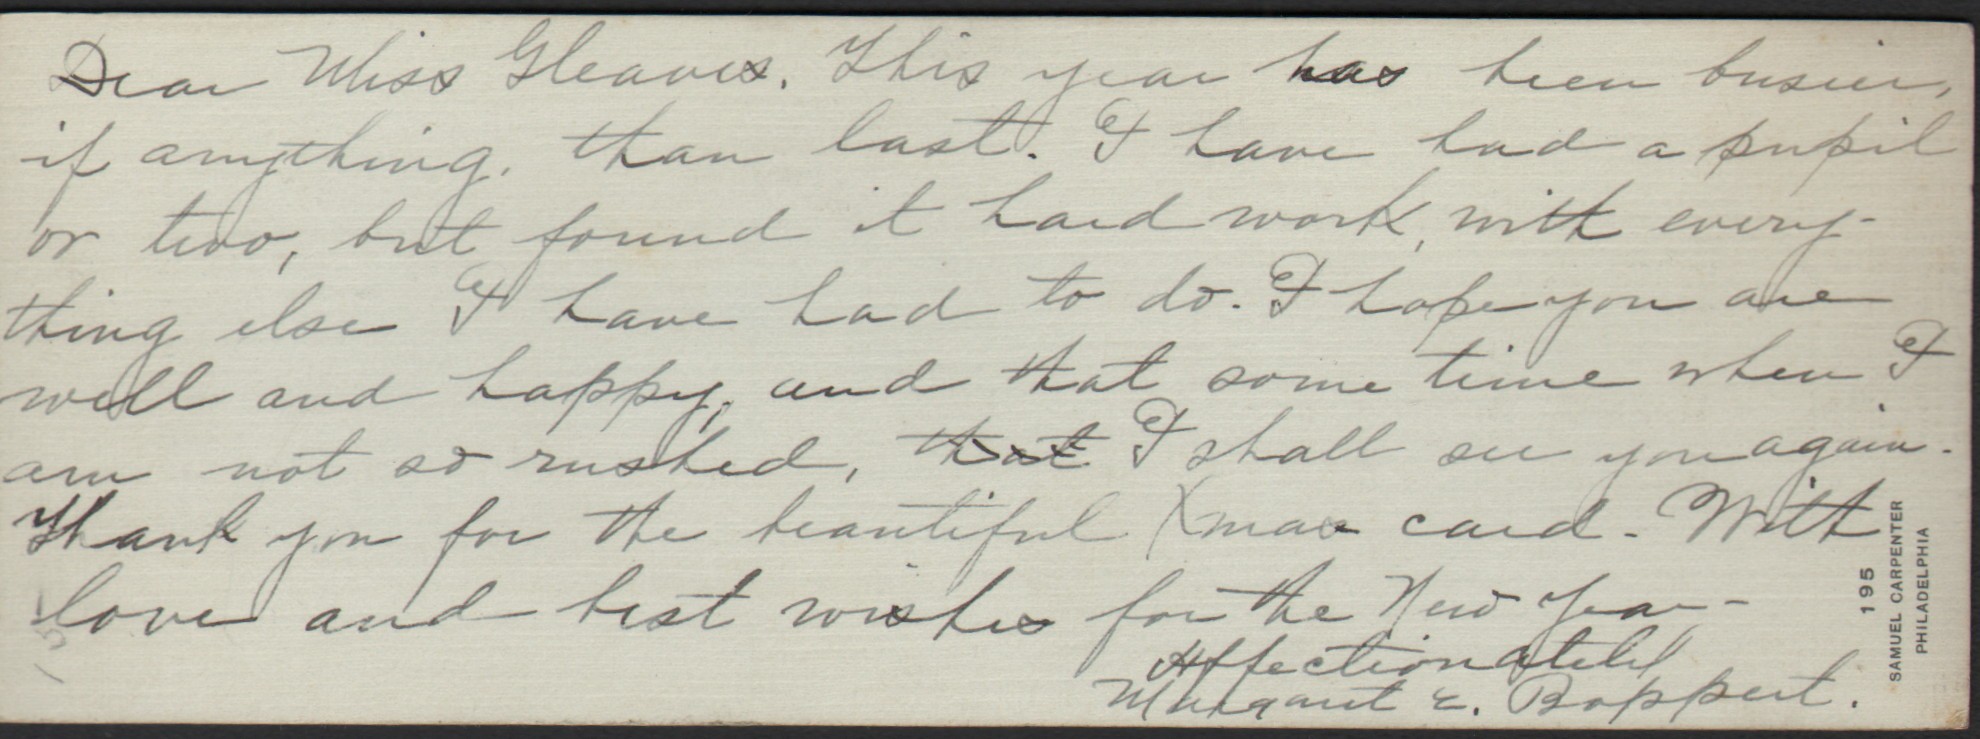 Dear Miss Gleaves. This year has been busier,
if anything, than last. I have had a pupil
or two, but found it hard work, with every-
thing else I have had to do. I hope you are
well and happy, and that some time when I
am not so rushed, that I shall see you again.
Thank you for the beautiful Xmas card. With
love and best wishes for the New Year-
Affectionately
Margaret E. Boppert.
195
SAMUEL CARPENTER
PHILADELPHIA